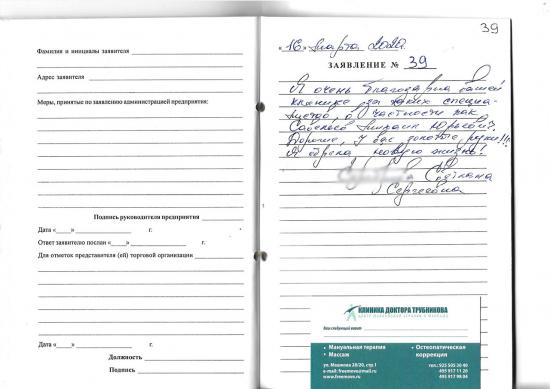 Фамилия и инициалы заявителя
Адрес заявителя
Меры, принятые по заявлению администрацией предприятия:
Подпись руководителя предприятия
Дата «____» г.
Ответ заявителю послан «____» г.
Для отметок представителя (ей) торговой организации
Дата «____» г.
Должность
Подпись
39
«16» марта 2020
ЗАЯВЛЕНИЕ № 39
Я очень благодарна вашей
клинике за таких специа-
листов, в частности как
Юрьевич.
Хорошие, у вас золотые ручки!!!
Я обрела новую жизнь!
Светлана
Сергеевна
КЛИНИКА ДОКТОРА ТРУБНИКОВА
Ваш следующий визит:
• Мануальная терапия
• Массаж
• Остеопатическая
коррекция
ул. Машкова 28/20, стр.1
e-mail: freemove@mail.ru
www.freemovn.ru
тел.: 925 505 30 40
495 917 11 20
495 917 98 04